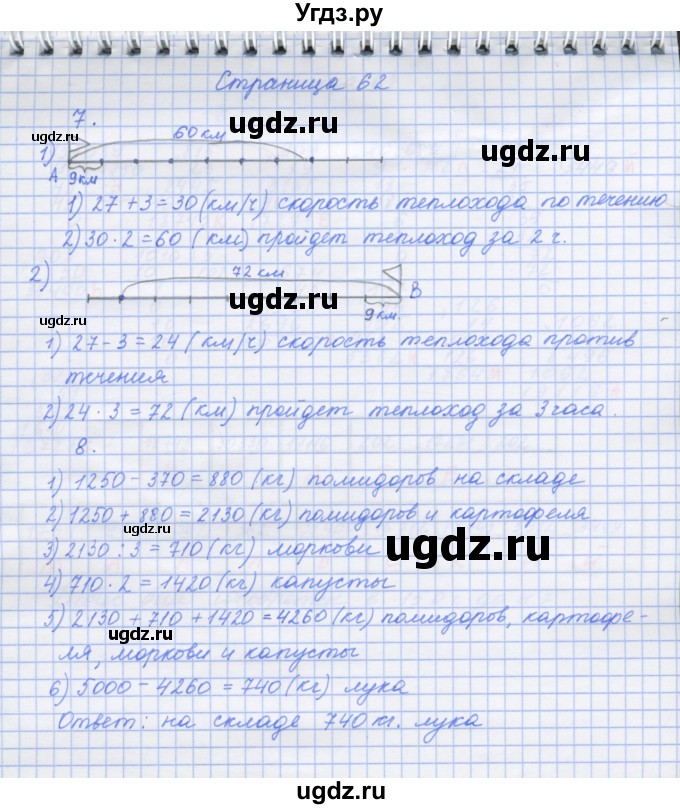 Угдз.ру
Страница 62
7.
ugdz.ru
ugdz.ru
60 км
1)
А 9км
ugdz.ru
1) 27 + 3 = 30 (км/ч) скорость теплохода по течению
2) 30 · 2 = 60 (км) пройдет теплоход за 2 ч.
2)
72 км
В
9км.
ugdz.ru
ugdz.ru
1) 27 - 3 = 24 (км/ч) скорость теплохода против
течения
2) 24 · 3 = 72 (км) пройдет теплоход за 3 часа.
8.
1) 1250 - 370 = 880 (кг) помидоров на складе
2) 1250 + 880 = 2130 (кг) помидоров и картофеля
ugdz.ru
3) 2130 : 3 = 710 (кг) моркови
ugdz.ru
4) 710 · 2 = 1420 (кг) капусты
5) 2130 + 710 + 1420 = 4260 (кг) помидоров, картофе-
ugdz.ru
ля, моркови и капусты
6) 5000 - 4260 = 740 (кг) лука
Ответ: на складе 740 кг. лука
ugdz.ru
ugdz.ru